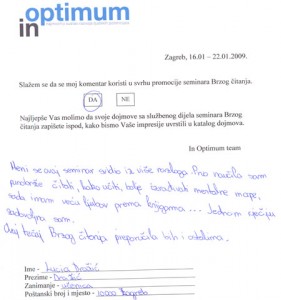 optimum
in
Zagreb, 16.01 – 22.01.2009.
Slažem se da se moj komentar koristi u svrhu promocije seminara Brzog čitanja.
DA NE
Najljepše Vas molimo da svoje dojmove sa službenog dijela seminara Brzog
čitanja zapišete ispod, kako bismo Vaše impresije uvrstili u katalog dojmova.
In Optimum team
Meni se ovaj seminar svidio iz više razloga. Prvo naučila sam
puno brže čitati, kako učiti, bolje izrađivati mentalne mape,
sada imam veću ljubav prema knjigama... Jednom rječju
zadovoljna sam.
Ovaj tečaj Brzog čitanja preporučila bih i ostalima.
Ime - Lucia
Prezime -
Zanimanje - učenica
Poštanski broj i mjesto - 10000 Zagreb